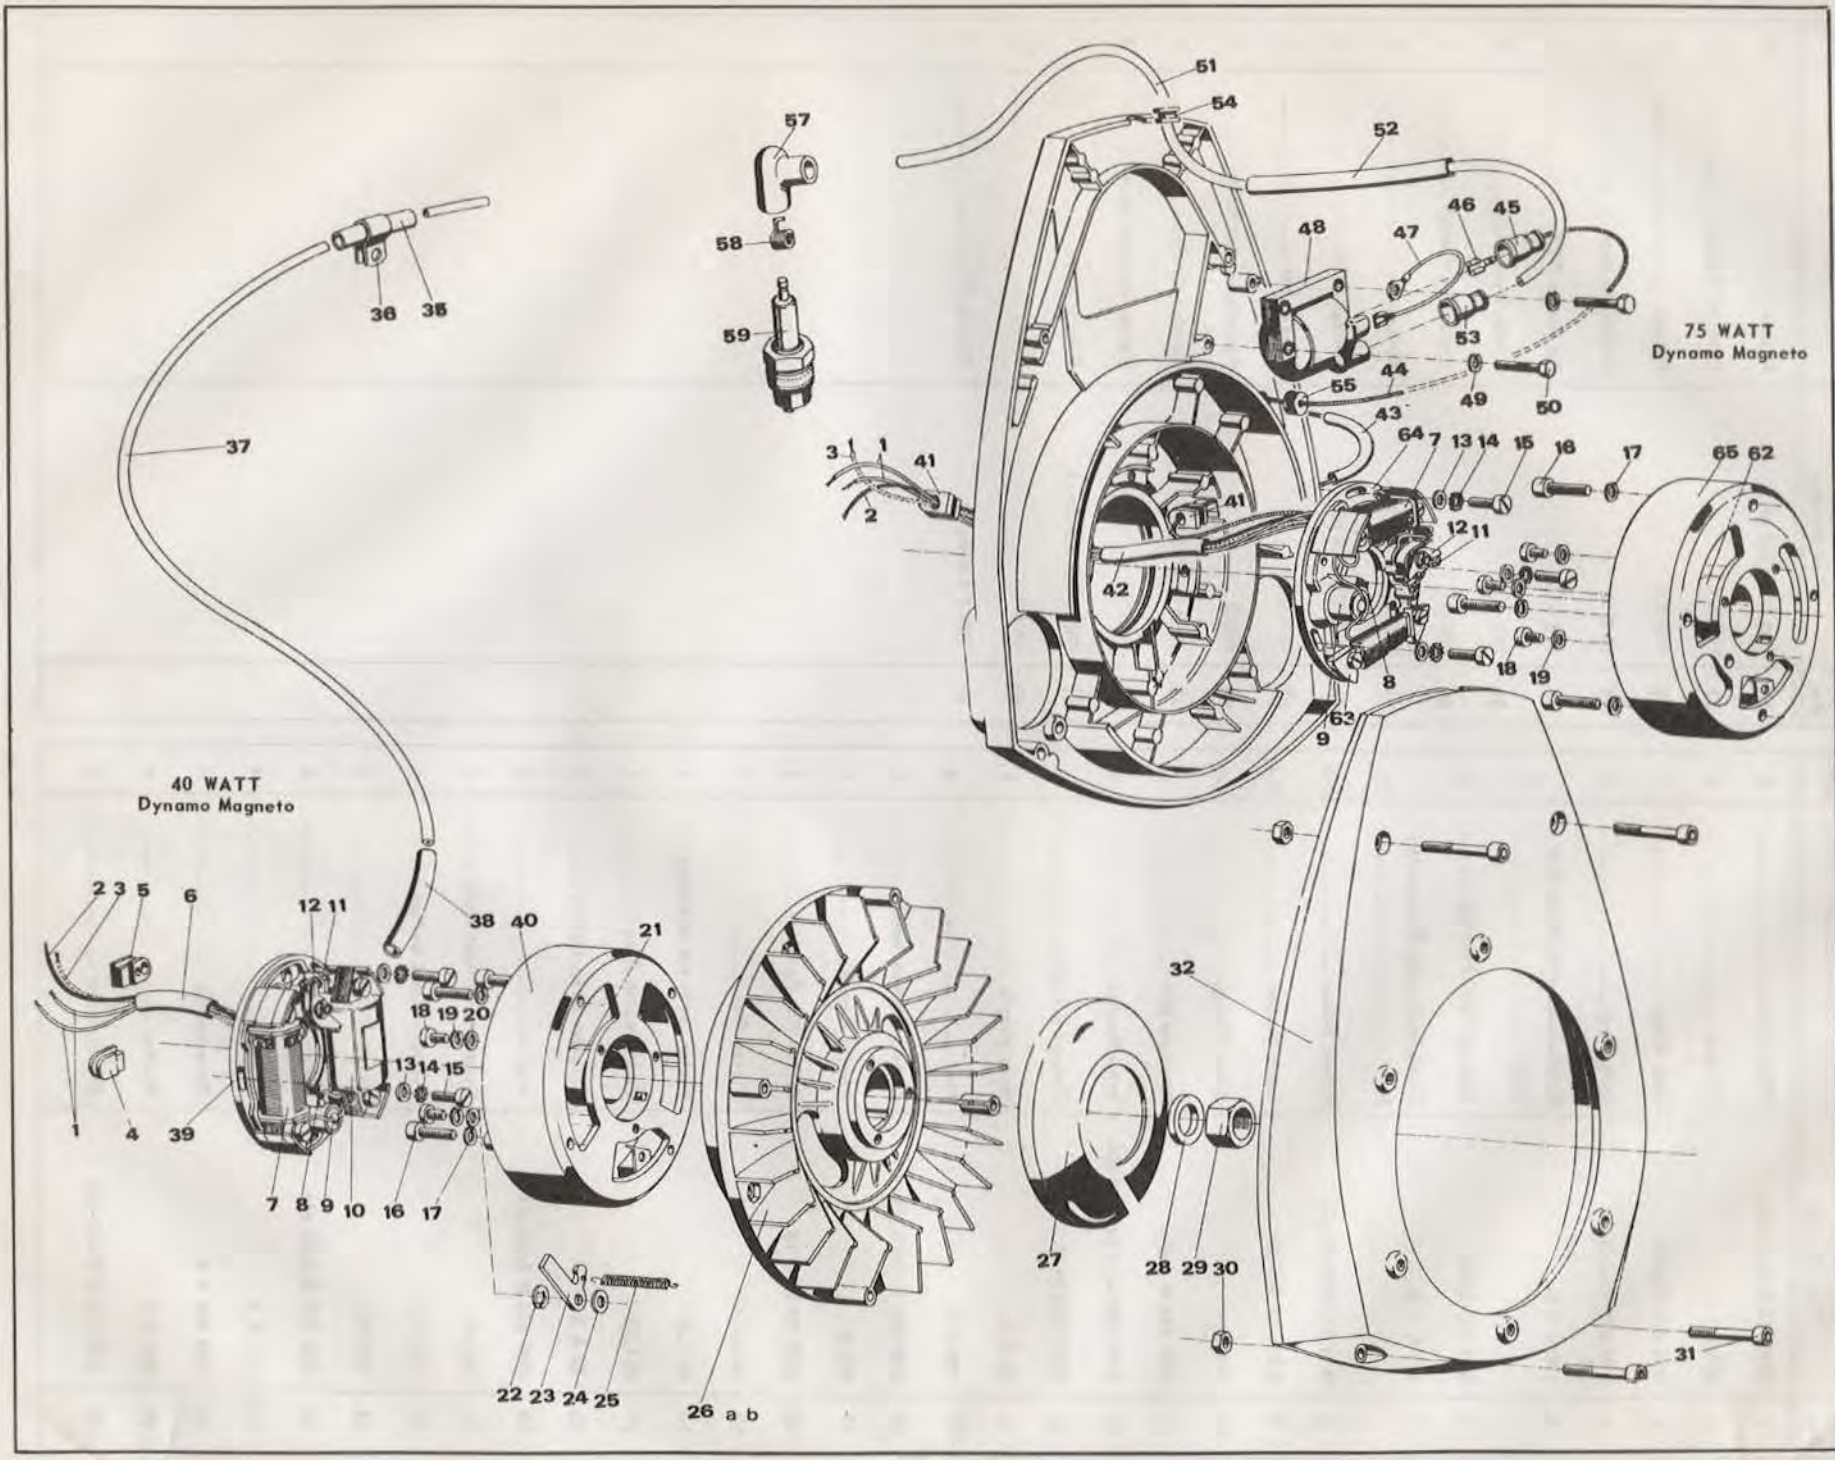 51
54
57
52
46 45
47
48
58
36 35
59
53
75 WATT
Dynamo Magneto
55 44
49 50
43
37
3 1 1
41
64 7 13 14 15
16 17
65 62
2
41
12 11
42
18 19
8
63
9
40 WATT
Dynamo Magneto
2 3 5 6
12 11
38 40
21
32
18 19 20
13 14 15
1 4 39
7 8 9 10 16 17
27 28 29 30
22 23 24 25
26 a b
31